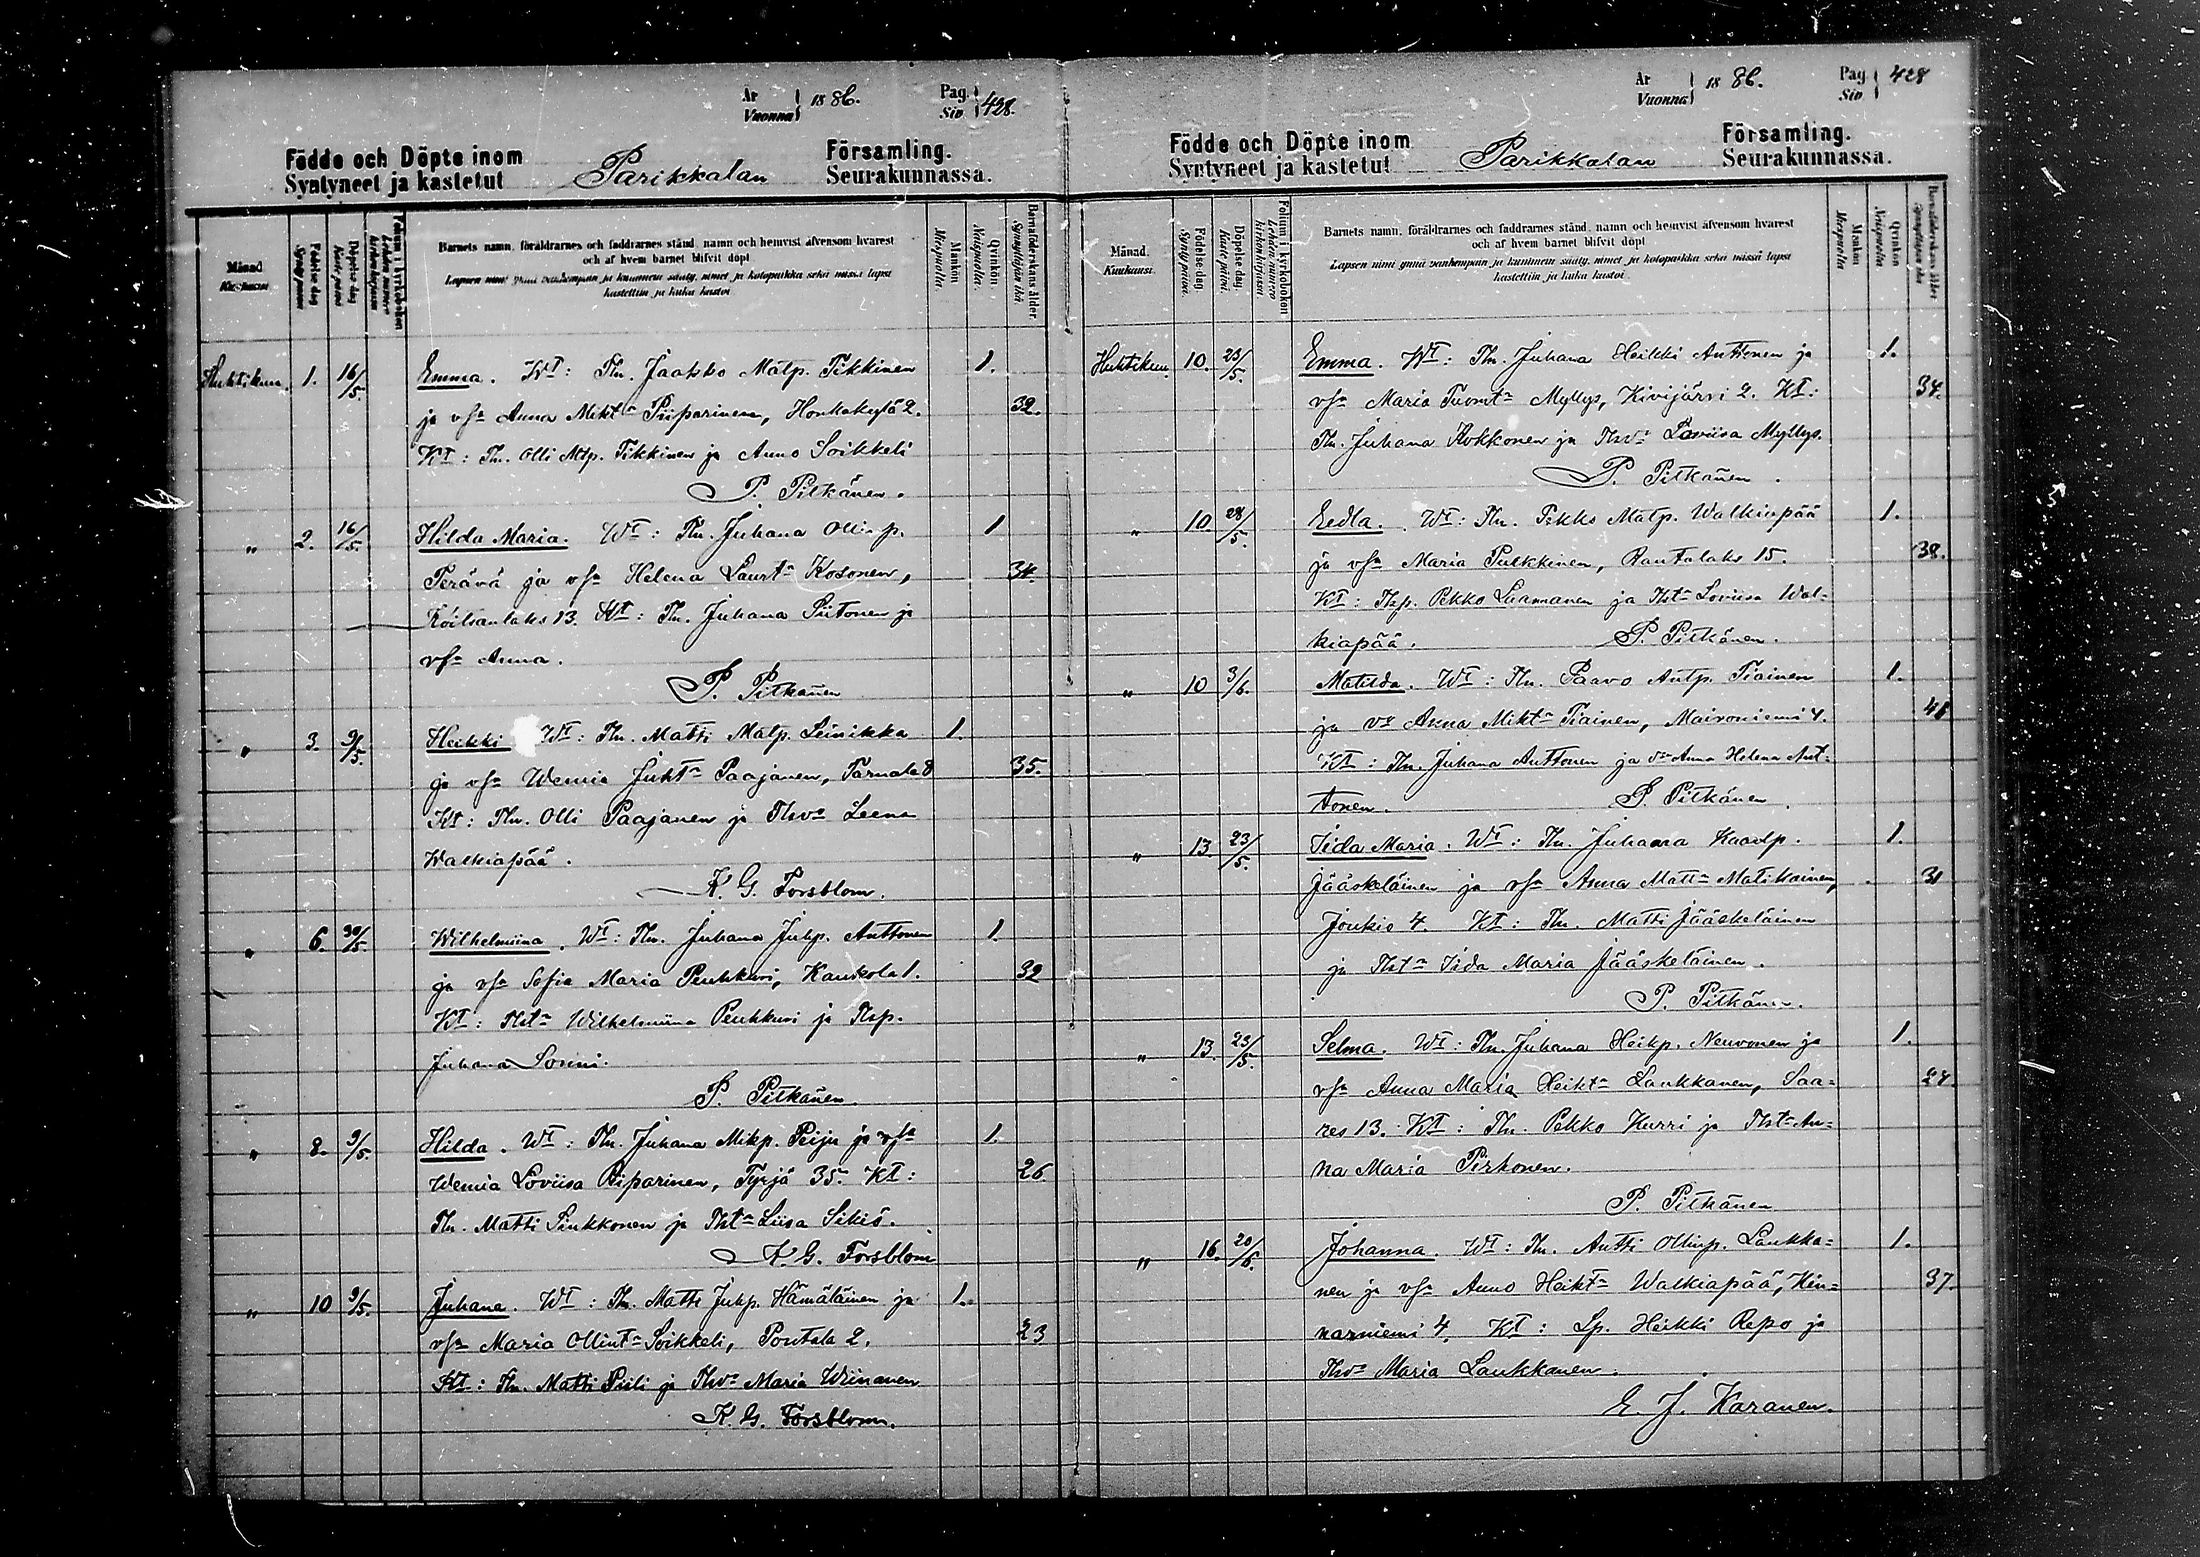 År
Vuonna 1886. Pag. Siv 428.
Födde och Döpte inom
Syntyneet ja kastetut Parikkalan Församling. Seurakunnassa.
Månad Kuukausi
Födelse dag Synty päivä
Döpelse dag Kaste päivä
Folium i kyrkoboken Lehden numero kirkonkirjassa
Barnets namn, föräldrarnes och faddrarnes stånd, namn och hemvist äfvensom hvarest
och af hvem barnet blifvit döpt
Lapsen nimi ynnä vanhempain ja kummein sääty, nimet ja kotopaikka sekä missä lapsi
kastettiin ja kuka kastoi
Mankön Miespuolia
Qvinkön Naispuolia.
Barnaföderskans ålder. Synnyttäjän ikä.
Huhtikuu 1. 16/5. Emma. Wt: Tln. Jaakko Matp. Tikkinen 1.
ja vsa Anna Mikt. Piiparinen, Honkakylä 2. 32.
Kt: Tln. Olli Mtp. Tikkinen ja Anna Soikkeli
P. Pitkänen.
" 2. 16/5. Hilda Maria. Wt: Tln. Juhana Ollinp. 1
Terävä ja vsa Helena Laurt. Kosonen, 34.
Koitsanlaks 13. Kt: Tln. Juhana Siitonen ja
vsa Anna.
P. Pitkänen
" 3. 9/5. Heikki Wt: Tln. Matti Matp. Leinikka 1.
ja vsa Wemia Juht. Paajanen, Tarnala 8 35.
Kt: Tln. Olli Paajanen ja Tlva Leena
Walkiapää.
K. G. Forsblom.
" 6. 30/5 Wilhelmiina. Wt: Tln. Juhana Juhp. Anttonen 1.
ja vsa Sofia Maria Penhkuri, Kaukola 1. 32
Kt: Tlta Wilhelmiina Penhkuri ja Tlsp.
Juhana Sorini.
P. Pitkänen
" 8. 9/5. Hilda. Wt: Tln. Juhana Mikp. Peiju ja vsa 1.
Wemia Loviisa Piiparinen, Tyrjä 35. Kt: 26
Tln. Matti Sinkkonen ja Tlta Liisa Sikiö.
K. G. Forsblom
" 10 9/5. Juhana. Wt: Tln. Matti Juhp. Hämäläinen ja 1.
vsa Maria Ollint. Soikkeli, Poutala 2. 23
Kt: Tln. Matti Piili ja Tlva Maria Wiinanen
K. G. Forsblom.
År
Vuonna 1886. Pag Siv 428
Födde och Döpte inom
Syntyneet ja kastetut Parikkalan Församling. Seurakunnassa.
Månad. Kuukausi.
Födelse dag. Synty päivä.
Döpelse dag. Kaste päivä.
Folium i kyrkoboken Lehden numero kirkonkirjassa.
Barnets namn, föräldrarnes och faddrarnes stånd, namn och hemvist äfvensom hvarest
och af hvem barnet blifvit döpt
Lapsen nimi ynnä vanhempain ja kummein sääty, nimet ja kotopaikka sekä missä lapsi
kastettiin ja kuka kastoi.
Mankön Miespuolia
Qvinkön Naispuolia
Barnaföderskans ålder Synnyttäjän ikä
Huhtikuu. 10. 23/5. Emma. Wt: Tln. Juhana Heikki Anttonen ja 1.
vsa Maria Tuomt. Myllys, Kivijärvi 2. Kt: 34.
Tln. Juhana Kokkonen ja Tlva Loviisa Myllys.
P. Pitkänen.
" 10 28/5. Eedla. Wt: Tln. Pekko Matp. Walkiapää 1.
ja vsa Maria Pulkkinen, Rautalaks 15. 38.
Kt: Tlsp. Pekko Liiamanen ja Tlta Loviisa Wal-
kiapää. P. Pitkänen.
" 10 3/6. Matilda. Wt: Tln. Paavo Antp. Tiainen 1.
ja va Anna Mikt. Tiainen, Maironiemi 4.
Kt: Tln. Juhana Anttonen ja va Anna Helena Ant-
tonen. P. Pitkänen.
" 13. 23/5. Iida Maria. Wt: Tln. Juhana Kaarlp. 1.
Jääskeläinen ja vsa Anna Matt. Matikainen, 31
Joukio 4. Kt: Tln. Matti Jääskeläinen
ja Tlta Iida Maria Jääskeläinen.
P. Pitkänen.
" 13. 23/5. Selma. Wt: Tln. Juhana Heikp. Neuvonen ja 1.
vsa Anna Maria Heikt. Laukkanen, Saa-
res 13. Kt: Tln. Pekko Kurri ja Tlta An-
na Maria Pirhonen.
P. Pitkänen
" 16. 20/6. Johanna. Wt: Tln. Antti Ollinp. Laukka- 1.
nen ja vsa Anna Heikt. Walkiapää, Kin- 37.
narniemi 4. Kt: Lp. Heikki Repo ja
Tlva Maria Laukkanen.
E. J. Karanen.